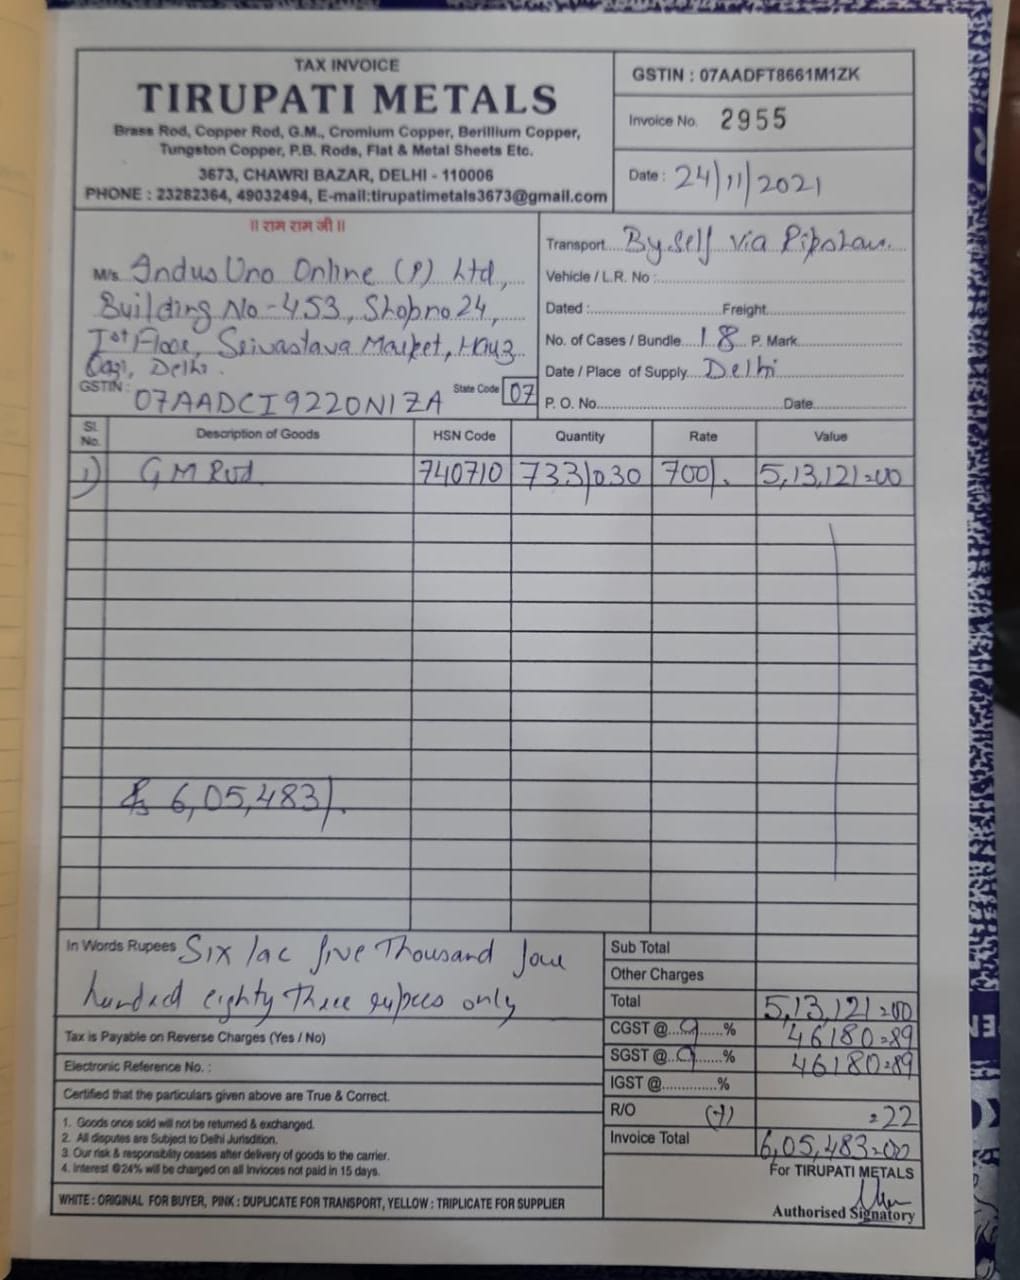 TAX INVOICE
TIRUPATI METALS
Brass Rod, Copper Rod, G.M., Cromium Copper, Berillium Copper,
Tungston Copper, P.B. Rods, Flat & Metal Sheets Etc.
3673, CHAWRI BAZAR, DELHI - 110006
PHONE : 23282364, 49032494, E-mail:tirupatimetals3673@gmail.com
GSTIN : 07AADFT8661M1ZK
Invoice No. 2955
Date : 24/11/2021
॥ राम राम जी ॥
M/s. Indus Uno Online (P) Ltd,
Building No-453, Shop no 24,
Ist Floor, Srivastava Market, Hauz
Qazi, Delhi.
GSTIN : 07AADCI9220N1ZA State Code 07
Transport By self via
Vehicle / L.R. No :
Dated : Freight
No. of Cases / Bundle 18 P. Mark
Date / Place of Supply Delhi
P. O. No. Date
Sl. No. Description of Goods HSN Code Quantity Rate Value
1) G M Rod 740710 733/030 700/. 5,13,121=00
Rs 6,05,483/.
In Words Rupees Six lac five Thousand four
hundred eighty three rupees only
Tax is Payable on Reverse Charges (Yes / No)
Electronic Reference No. :
Certified that the particulars given above are True & Correct.
1. Goods once sold will not be returned & exchanged.
2. All disputes are Subject to Delhi Jurisdition.
3. Our risk & responsiblity ceases after delivery of goods to the carrier.
4. Interest @24% will be charged on all Invioces not paid in 15 days.
WHITE : ORIGINAL FOR BUYER, PINK : DUPLICATE FOR TRANSPORT, YELLOW : TRIPLICATE FOR SUPPLIER
Sub Total
Other Charges
Total 5,13,121=00
CGST @ 9 % 46180=89
SGST @ 9 % 46180=89
IGST @ %
R/O (+) =22
Invoice Total 6,05,483=00
For TIRUPATI METALS
Authorised Signatory